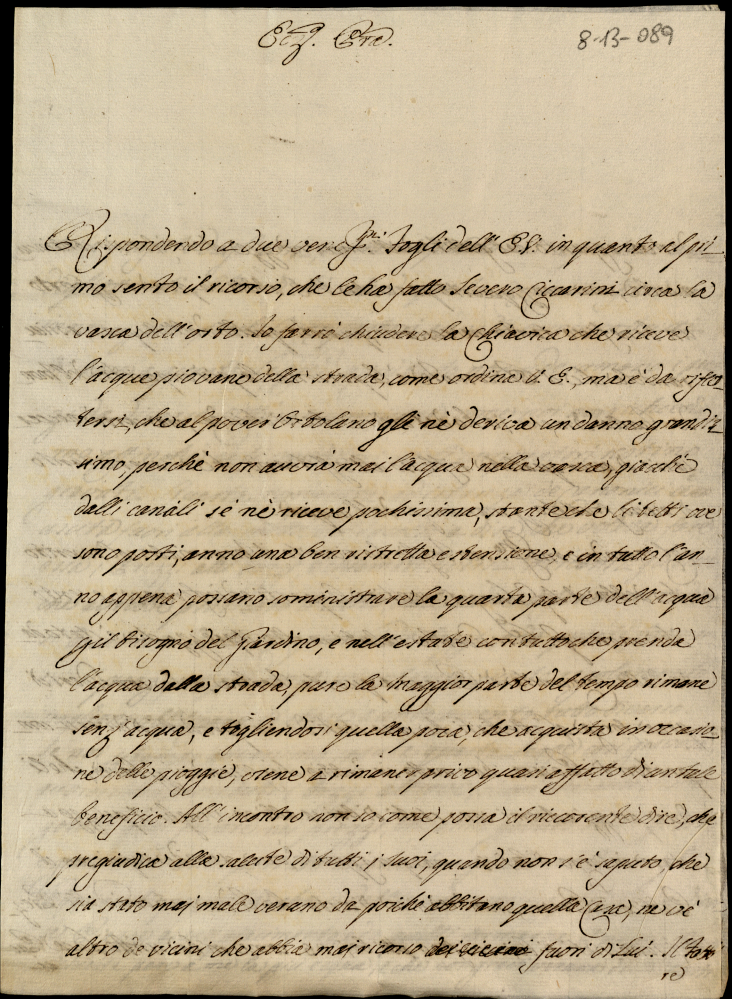 8-13-089
Rispondendo a due ver. fogli dell' E. V. in quanto al pri-
mo sento il ricorso, che le ha fatto Severo Ciccarini circa la
vasca dell'orto. Io farrò chiudere la Chiavica che riceve
l'acque piovane della strada, come ordina V. E., ma è da riflet-
tersi, che al pover Ortolano gli nè deriva un danno grandis-
simo, perchè non auvrà mai l'acqua nella vasca, giacchè
dalli canali sé nè riceve pochissima, stante che li tetti ove
sono posti, anno una ben ristretta estensione, e in tutto l'an-
no appena possano somministrare la quarta parte dell'acqua
p il bisogno del Giardino, e nell'estate con tutto che prenda
l'acqua dalla strada, pure la maggior parte del tempo rimane
senz'acqua, e togliendosi quella poca, che acquista in occasio-
ne delle pioggie, viene a rimaner privo quasi affatto di un tale
beneficio. All'incontro non so come possa il riccorente dire, che
pregiudica alla salute di tutti i suoi, quando non s'è saputo, che
sia stato mai male verano da poiché abbitano quella Casa, ne v'è
altro de vicini che abbia mai ricorso fuori di Lui. Il
re